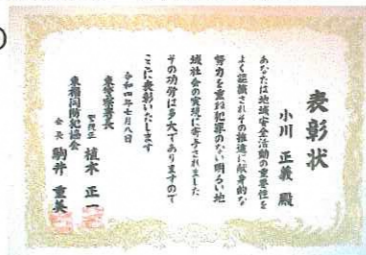 表彰状
小川 正義 殿
あなたは地域安全活動の重要性を
よく認識されその推進に献身的な
努力を重ね犯罪のない明るい地
域社会の実現に寄与されました
その功労は多大でありますので
ここに表彰いたします
令和四年七月八日
警察署長
警視正 植木 正一
防犯協会
会長 駒井 重美